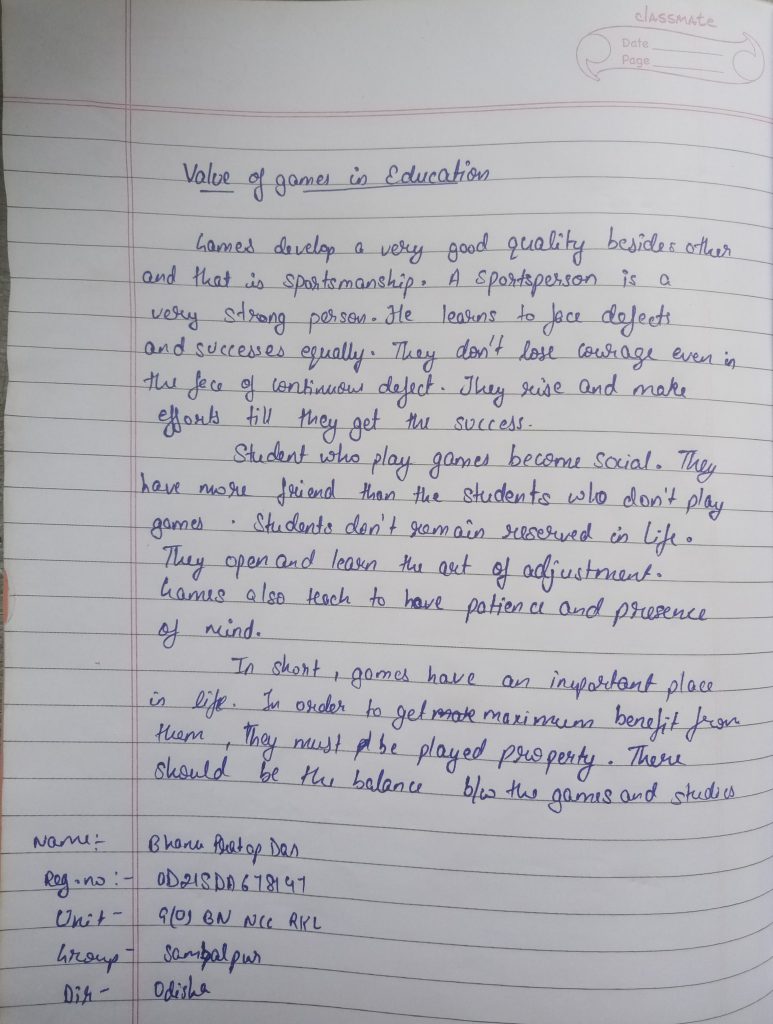 classmate
Date
Page
Value of games in Education
Games develop a very good quality besides other
and that is sportsmanship. A sportsperson is a
very strong person. He learns to face defects
and successes equally. They don't lose courage even in
the face of continuous defect. They rise and make
efforts till they get the success.
Student who play games become social. They
have more friend than the students who don't play
games. Students don't remain reserved in life.
They open and learn the art of adjustment.
Games also teach to have patience and presence
of mind.
In short, games have an important place
in life. In order to get maximum benefit from
them, They must be played property. There
should be the balance b/w the games and studies
Name:- Bhanu Pratap Das
Reg.no:- OD21SDA678147
Unit- 9(O) BN NCC RKL
Group- Sambalpur
Dir- Odisha